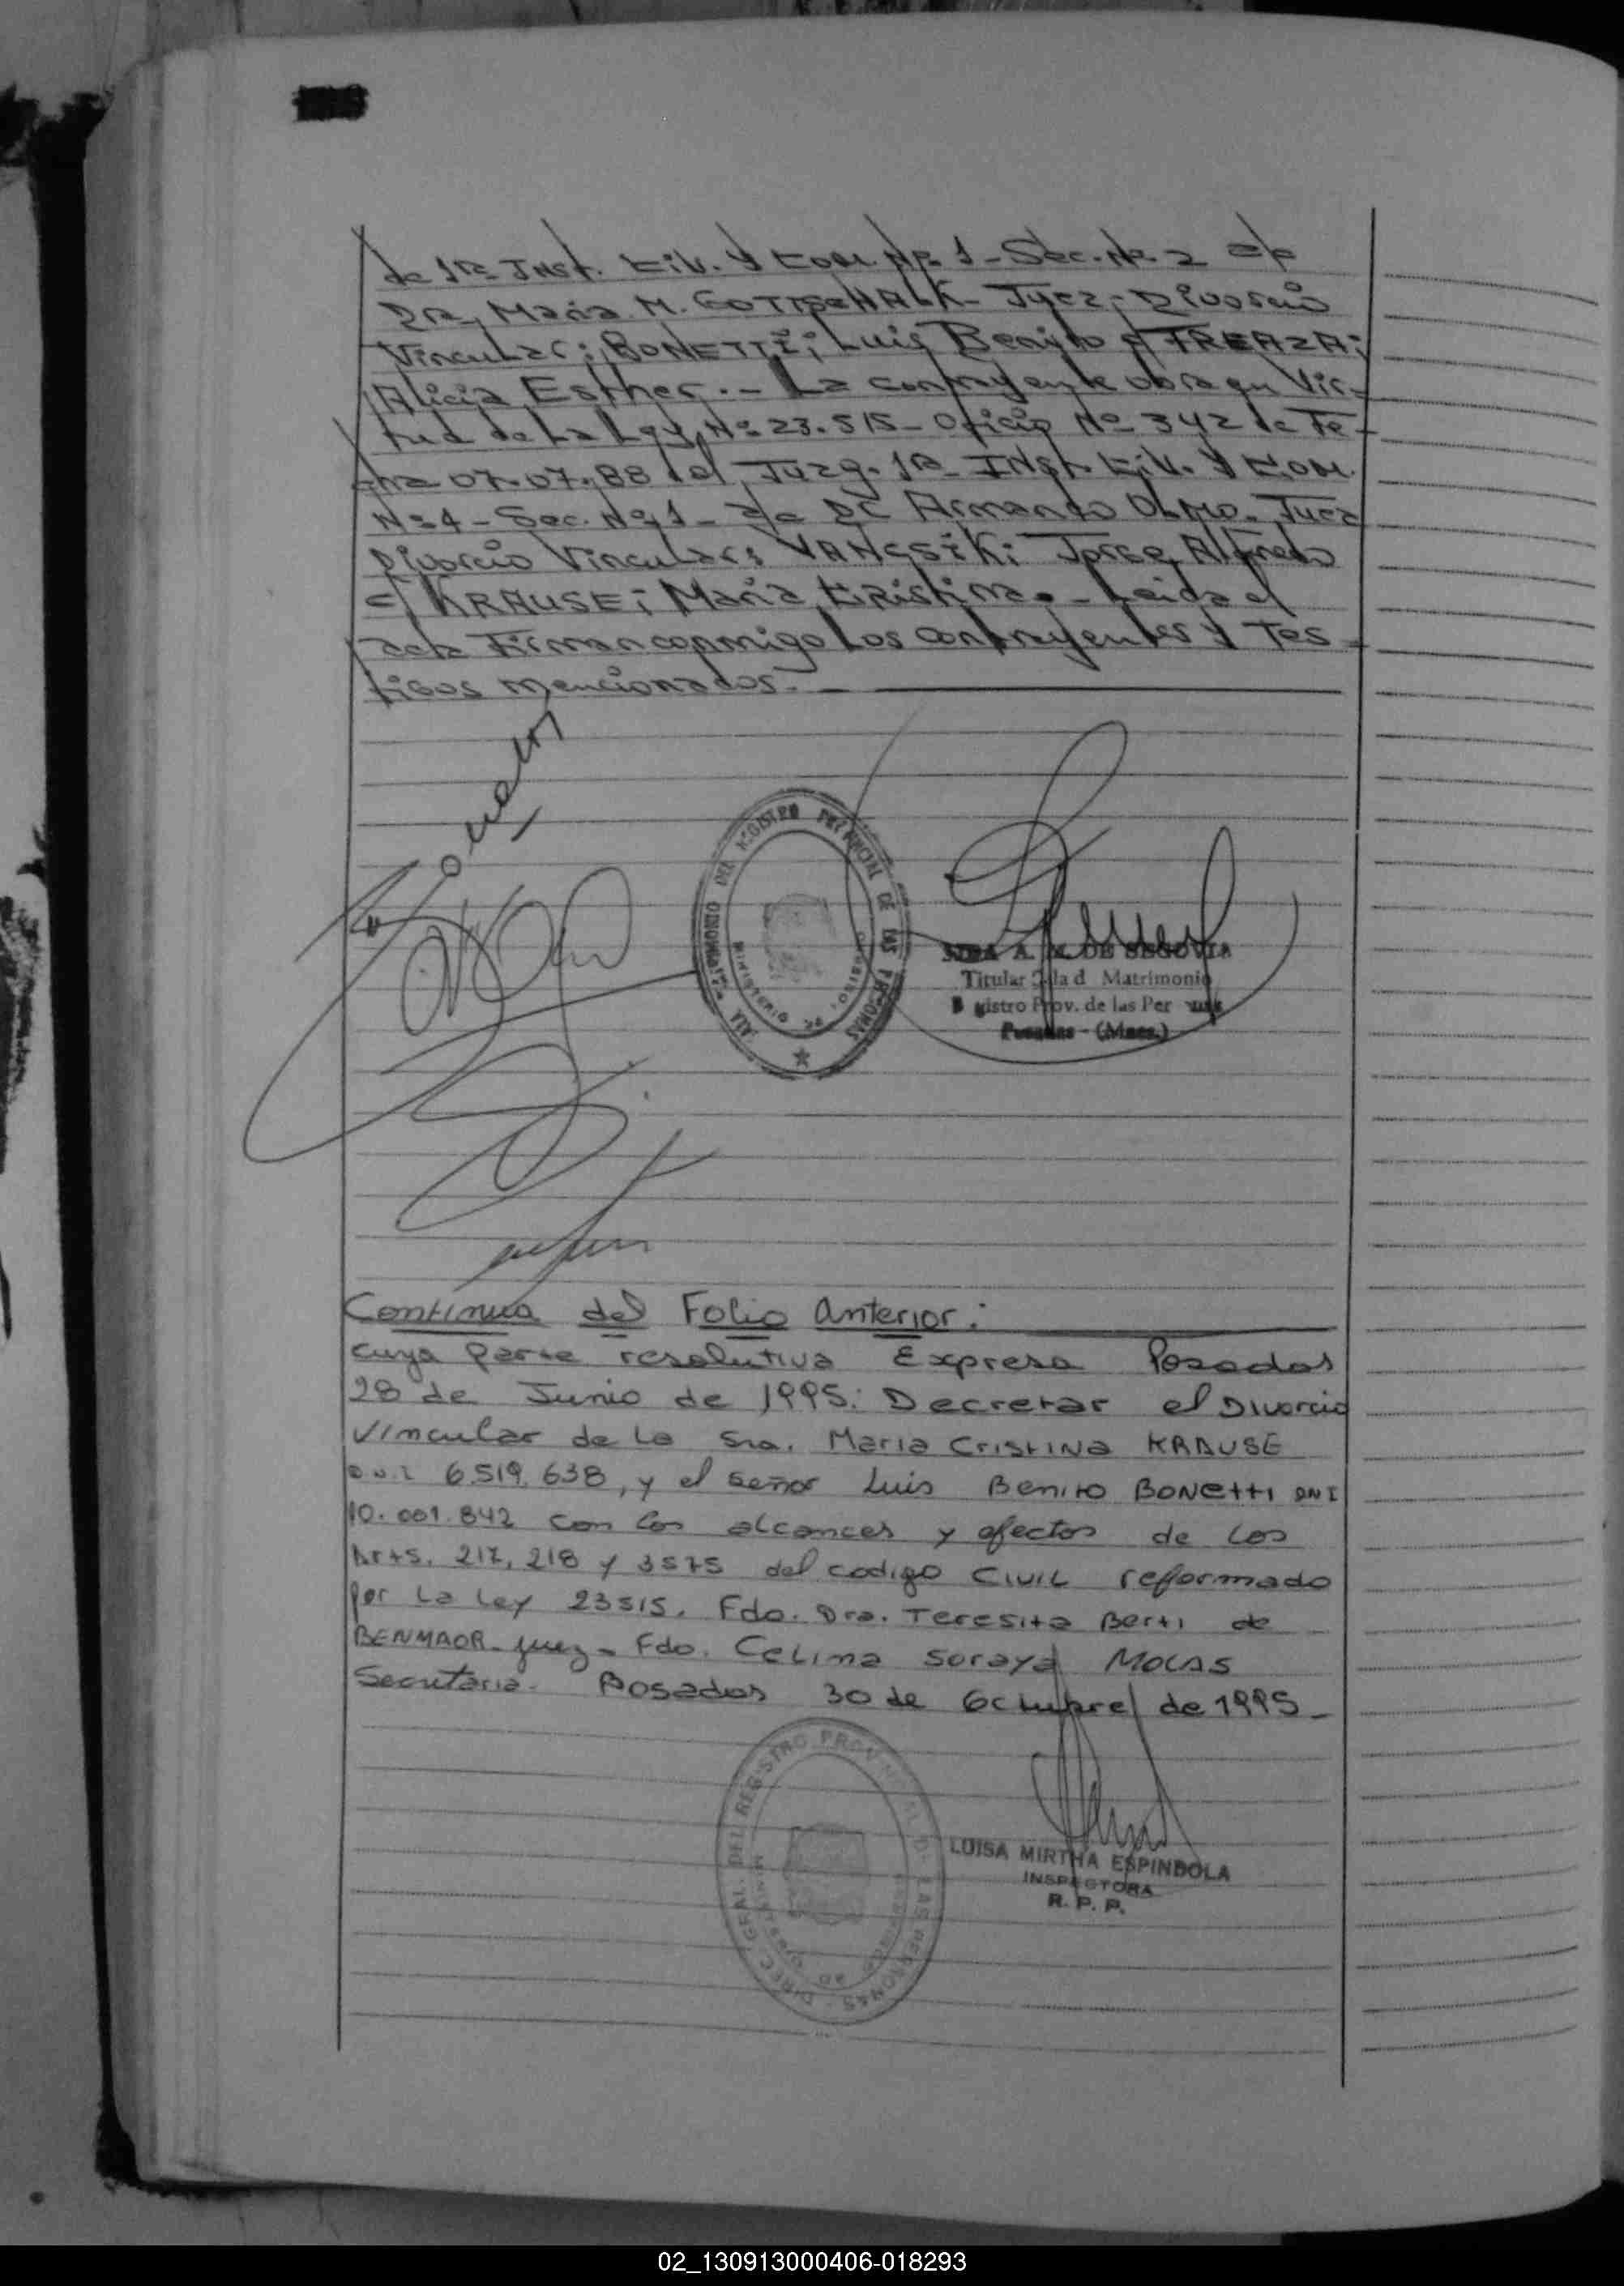 de 1ra Inst. Civ. y Com. Nº 1 - Sec. Nº 2 a/c
Dra. Maria M. GOTTSCHALK - Juez - Divorcio
Vincular: BONETTI; Luis Benito c/ FREAZA;
Alicia Esther. - La contrayente obra en Vir-
tud de La Ley Nº 23.515 - Oficio Nº 342 de Fe-
cha 07.07.88 del Juzg. 1ra Inst. Civ. y Com.
Nº 4 - Sec. Nº 1 - a/c Dr Armando OLMO. Juez
Divorcio Vincular: VANCSIK; Jorge Alfredo
c/ KRAUSE; Maria Cristina. - Leida el
acta Firman conmigo Los contrayentes y Tes-
tigos mencionados. -
DEL REGISTRO PROVINCIAL DE LAS PERSONAS
MINISTERIO DE GOBIERNO
A. M. DE SEGOVIA
Titular d Matrimonio
gistro Prov. de las Per
Posadas - (Mnes.)
Continua del Folio anterior:
cuya parte resolutiva Expresa Posadas
28 de Junio de 1995: Decretar el Divorcio
Vincular de La Sra. Maria Cristina KRAUSE
D.N.I 6.519.638, y el señor Luis Benito BONETTI DNI
10.001.842 con los alcances y efectos de los
Arts. 217, 218 y 3575 del codigo CIVIL reformado
por La Ley 23515. Fdo. Dra. Teresita Berti de
BENMAOR - Juez - Fdo. Celina Soraya MOLAS
Secretaria - Posadas 30 de Octubre de 1995 -
DIREC. GRAL. DEL REGISTRO PROVINCIAL DE LAS PERSONAS
MINISTERIO DE GOBIERNO
LUISA MIRTHA ESPINDOLA
INSPECTORA
R. P. P.
02_130913000406-018293